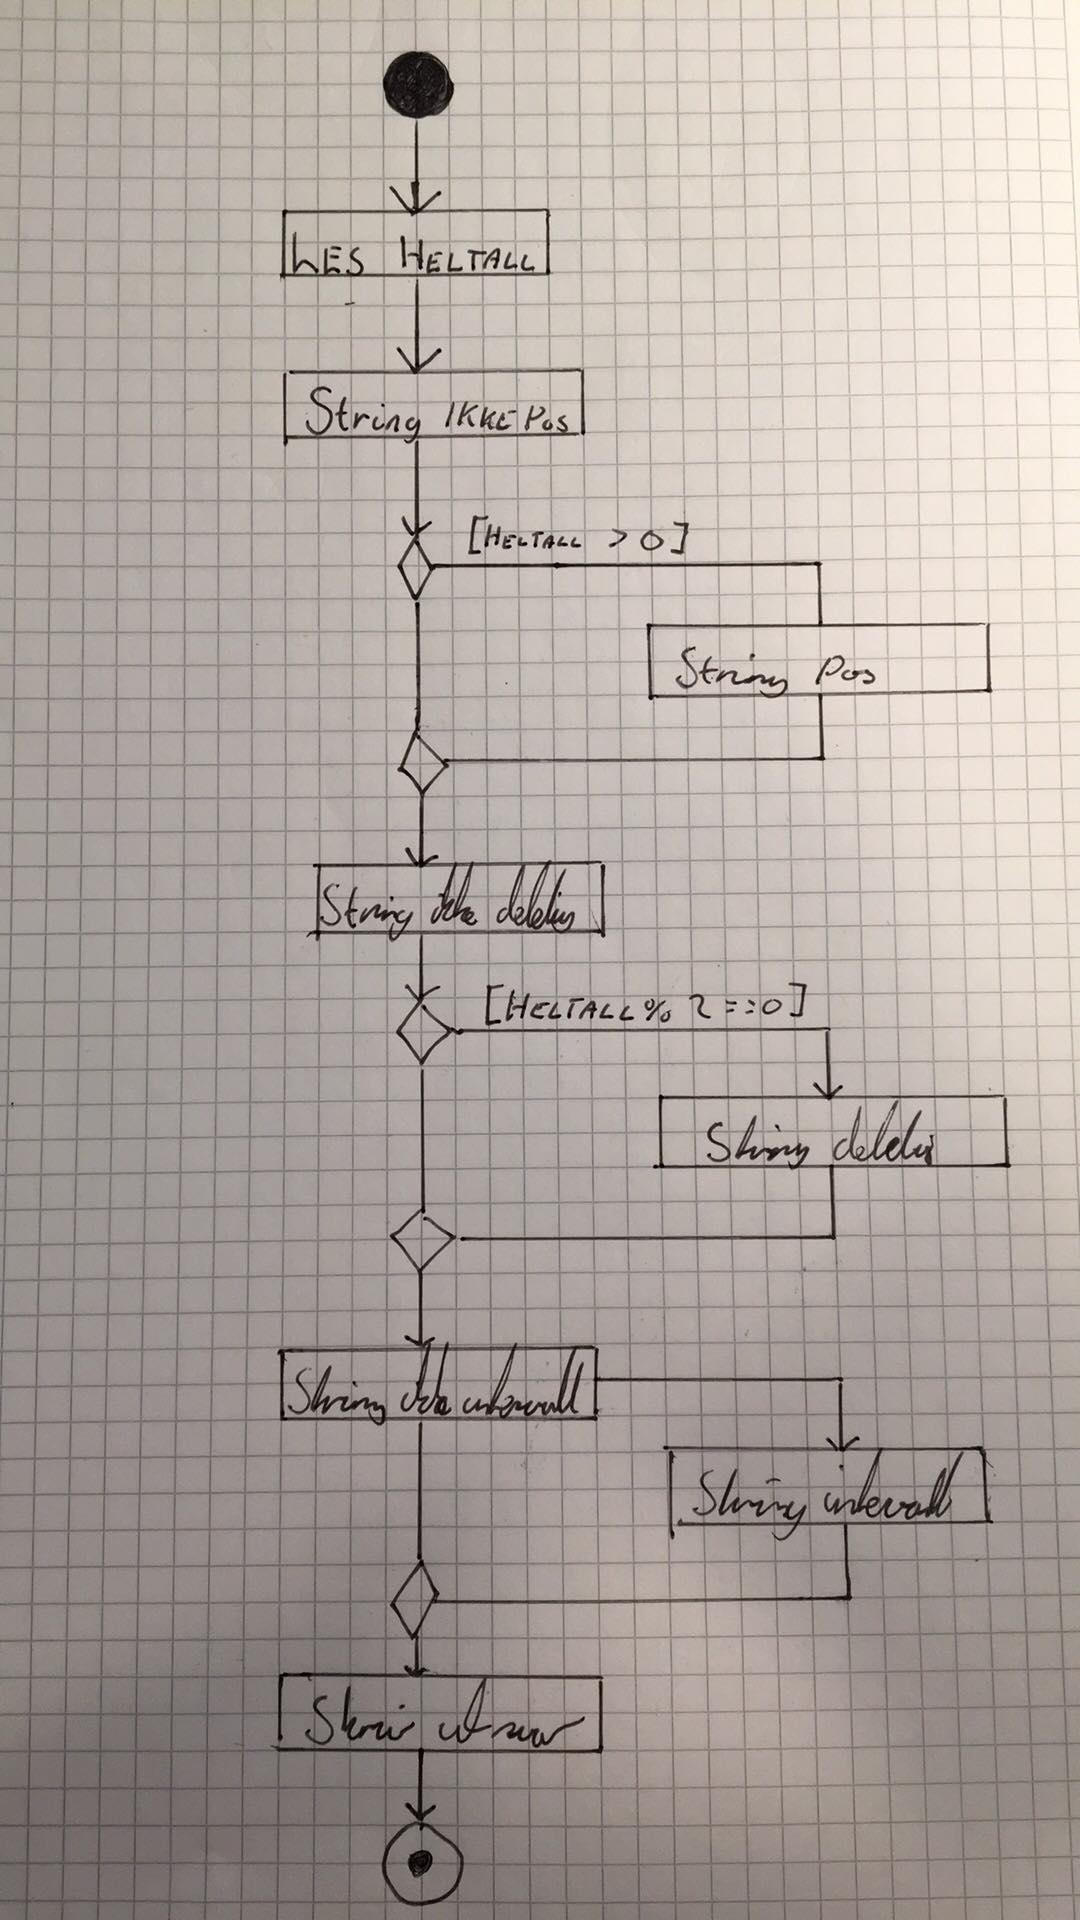 LES HELTALL
String IKKE Pos
[HELTALL > 0]
String Pos
String ikke delelig
[HELTALL % 2 == 0]
String delelig
String ikke intervall
String intervall
Skriv ut svar